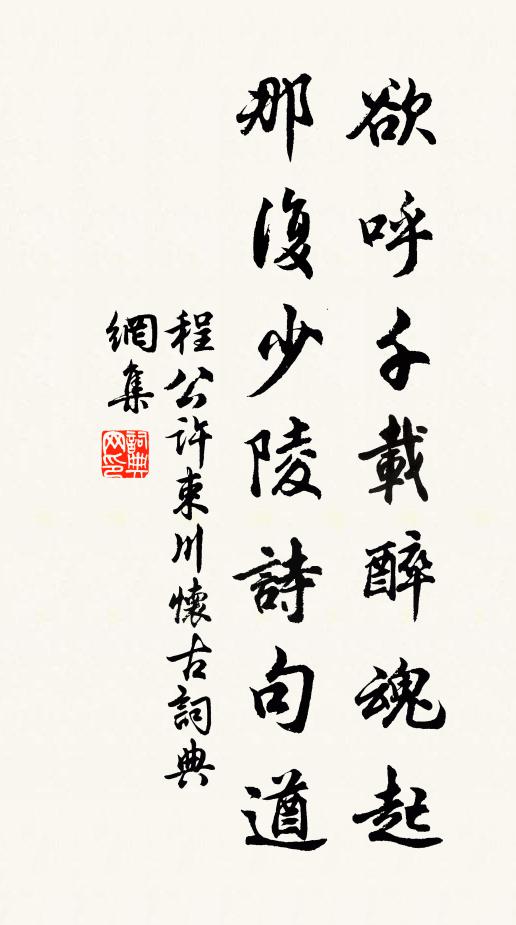 欲呼千載醉魂起
那復少陵詩句遒
程公許東川懷古詞典
網集
詞典網印